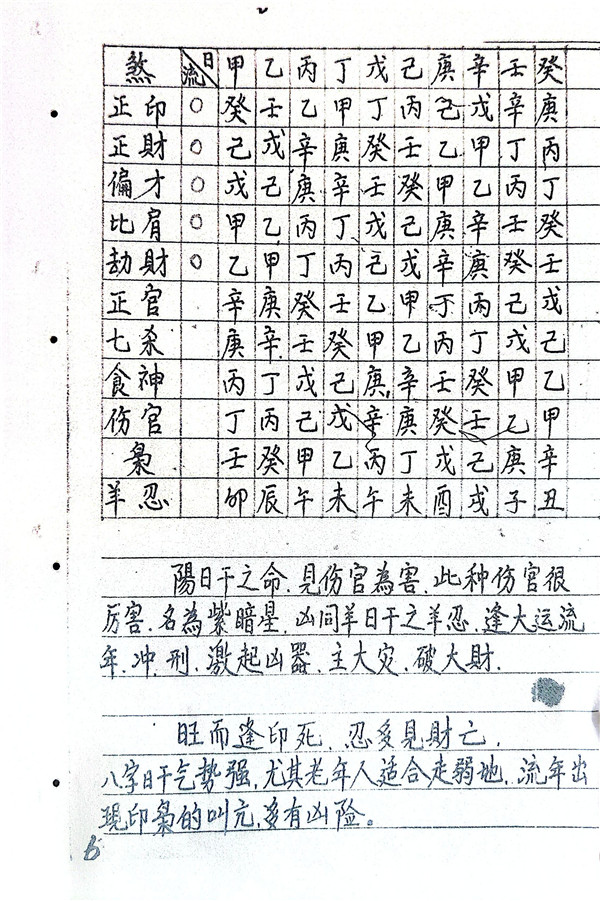 煞 日 流 甲 乙 丙 丁 戊 己 庚 辛 壬 癸
正印 ○ 癸 壬 乙 甲 丁 丙 己 戊 辛 庚
正財 ○ 己 戊 辛 庚 癸 壬 乙 甲 丁 丙
偏才 ○ 戊 己 庚 辛 壬 癸 甲 乙 丙 丁
比肩 ○ 甲 乙 丙 丁 戊 己 庚 辛 壬 癸
劫財 ○ 乙 甲 丁 丙 己 戊 辛 庚 癸 壬
正官 辛 庚 癸 壬 乙 甲 丁 丙 己 戊
七杀 庚 辛 壬 癸 甲 乙 丙 丁 戊 己
食神 丙 丁 戊 己 庚 辛 壬 癸 甲 乙
伤官 丁 丙 己 戊 辛 庚 癸 壬 乙 甲
梟 壬 癸 甲 乙 丙 丁 戊 己 庚 辛
羊忍 卯 辰 午 未 午 未 酉 戌 子 丑
陽日干之命.見伤官為害.此种伤官很
厉害.名為紫暗星.凶同羊日干之羊忍.逢大运流
年.冲.刑.激起凶器.主大灾.破大財.
旺而逢印死.忍多見財亡.
八字日干气势强.尤其老年人适合走弱地.流年出
現印梟的叫亢.多有凶险。
6